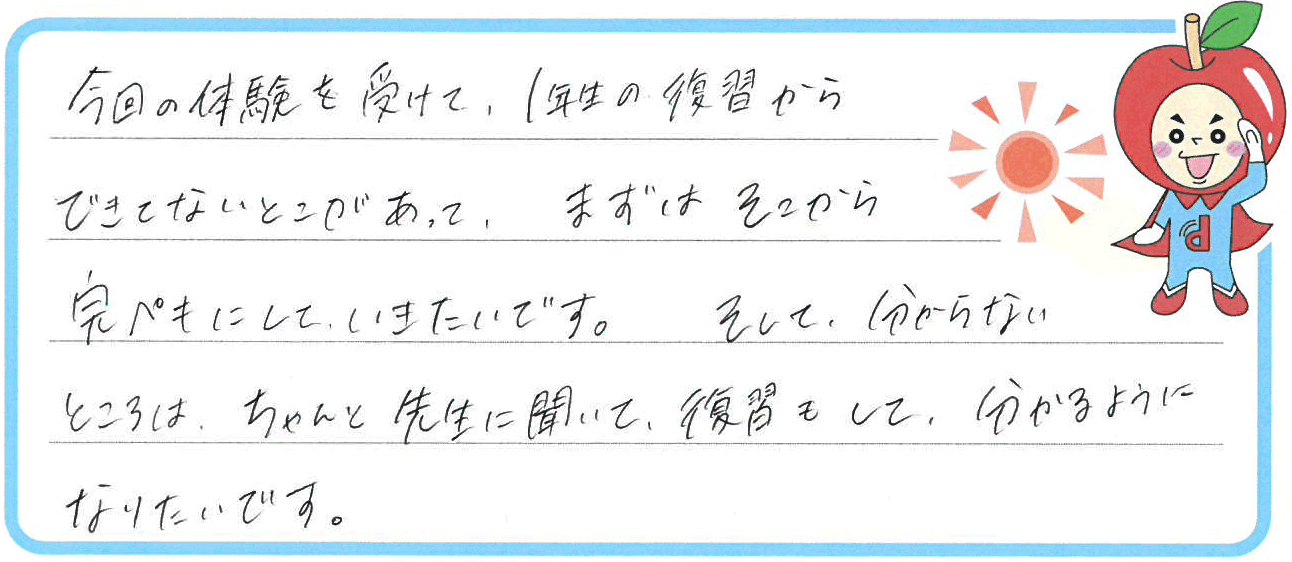 今回の体験を受けて、1年生の復習から
できてないとこがあって、まずはそこから
完ペキにして、いきたいです。そして、分からない
ところは、ちゃんと先生に聞いて、復習もして、分かるように
なりたいです。